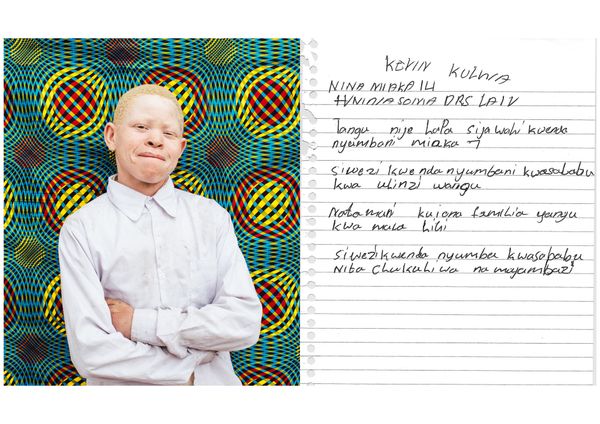 KEVIN KULWA
NINA MIAKA 14
NINASOMA DRS LA IV
Tangu nije hapa sijawahi kwenda
nyumbani miaka 7
Siwezi kwenda nyumbani kwasababu
kwa ulinzi wangu
Natamani kujona familia yangu
kwa mala
siwezi kwenda nyumba kwasababu
nita chukuliwa na majambazi